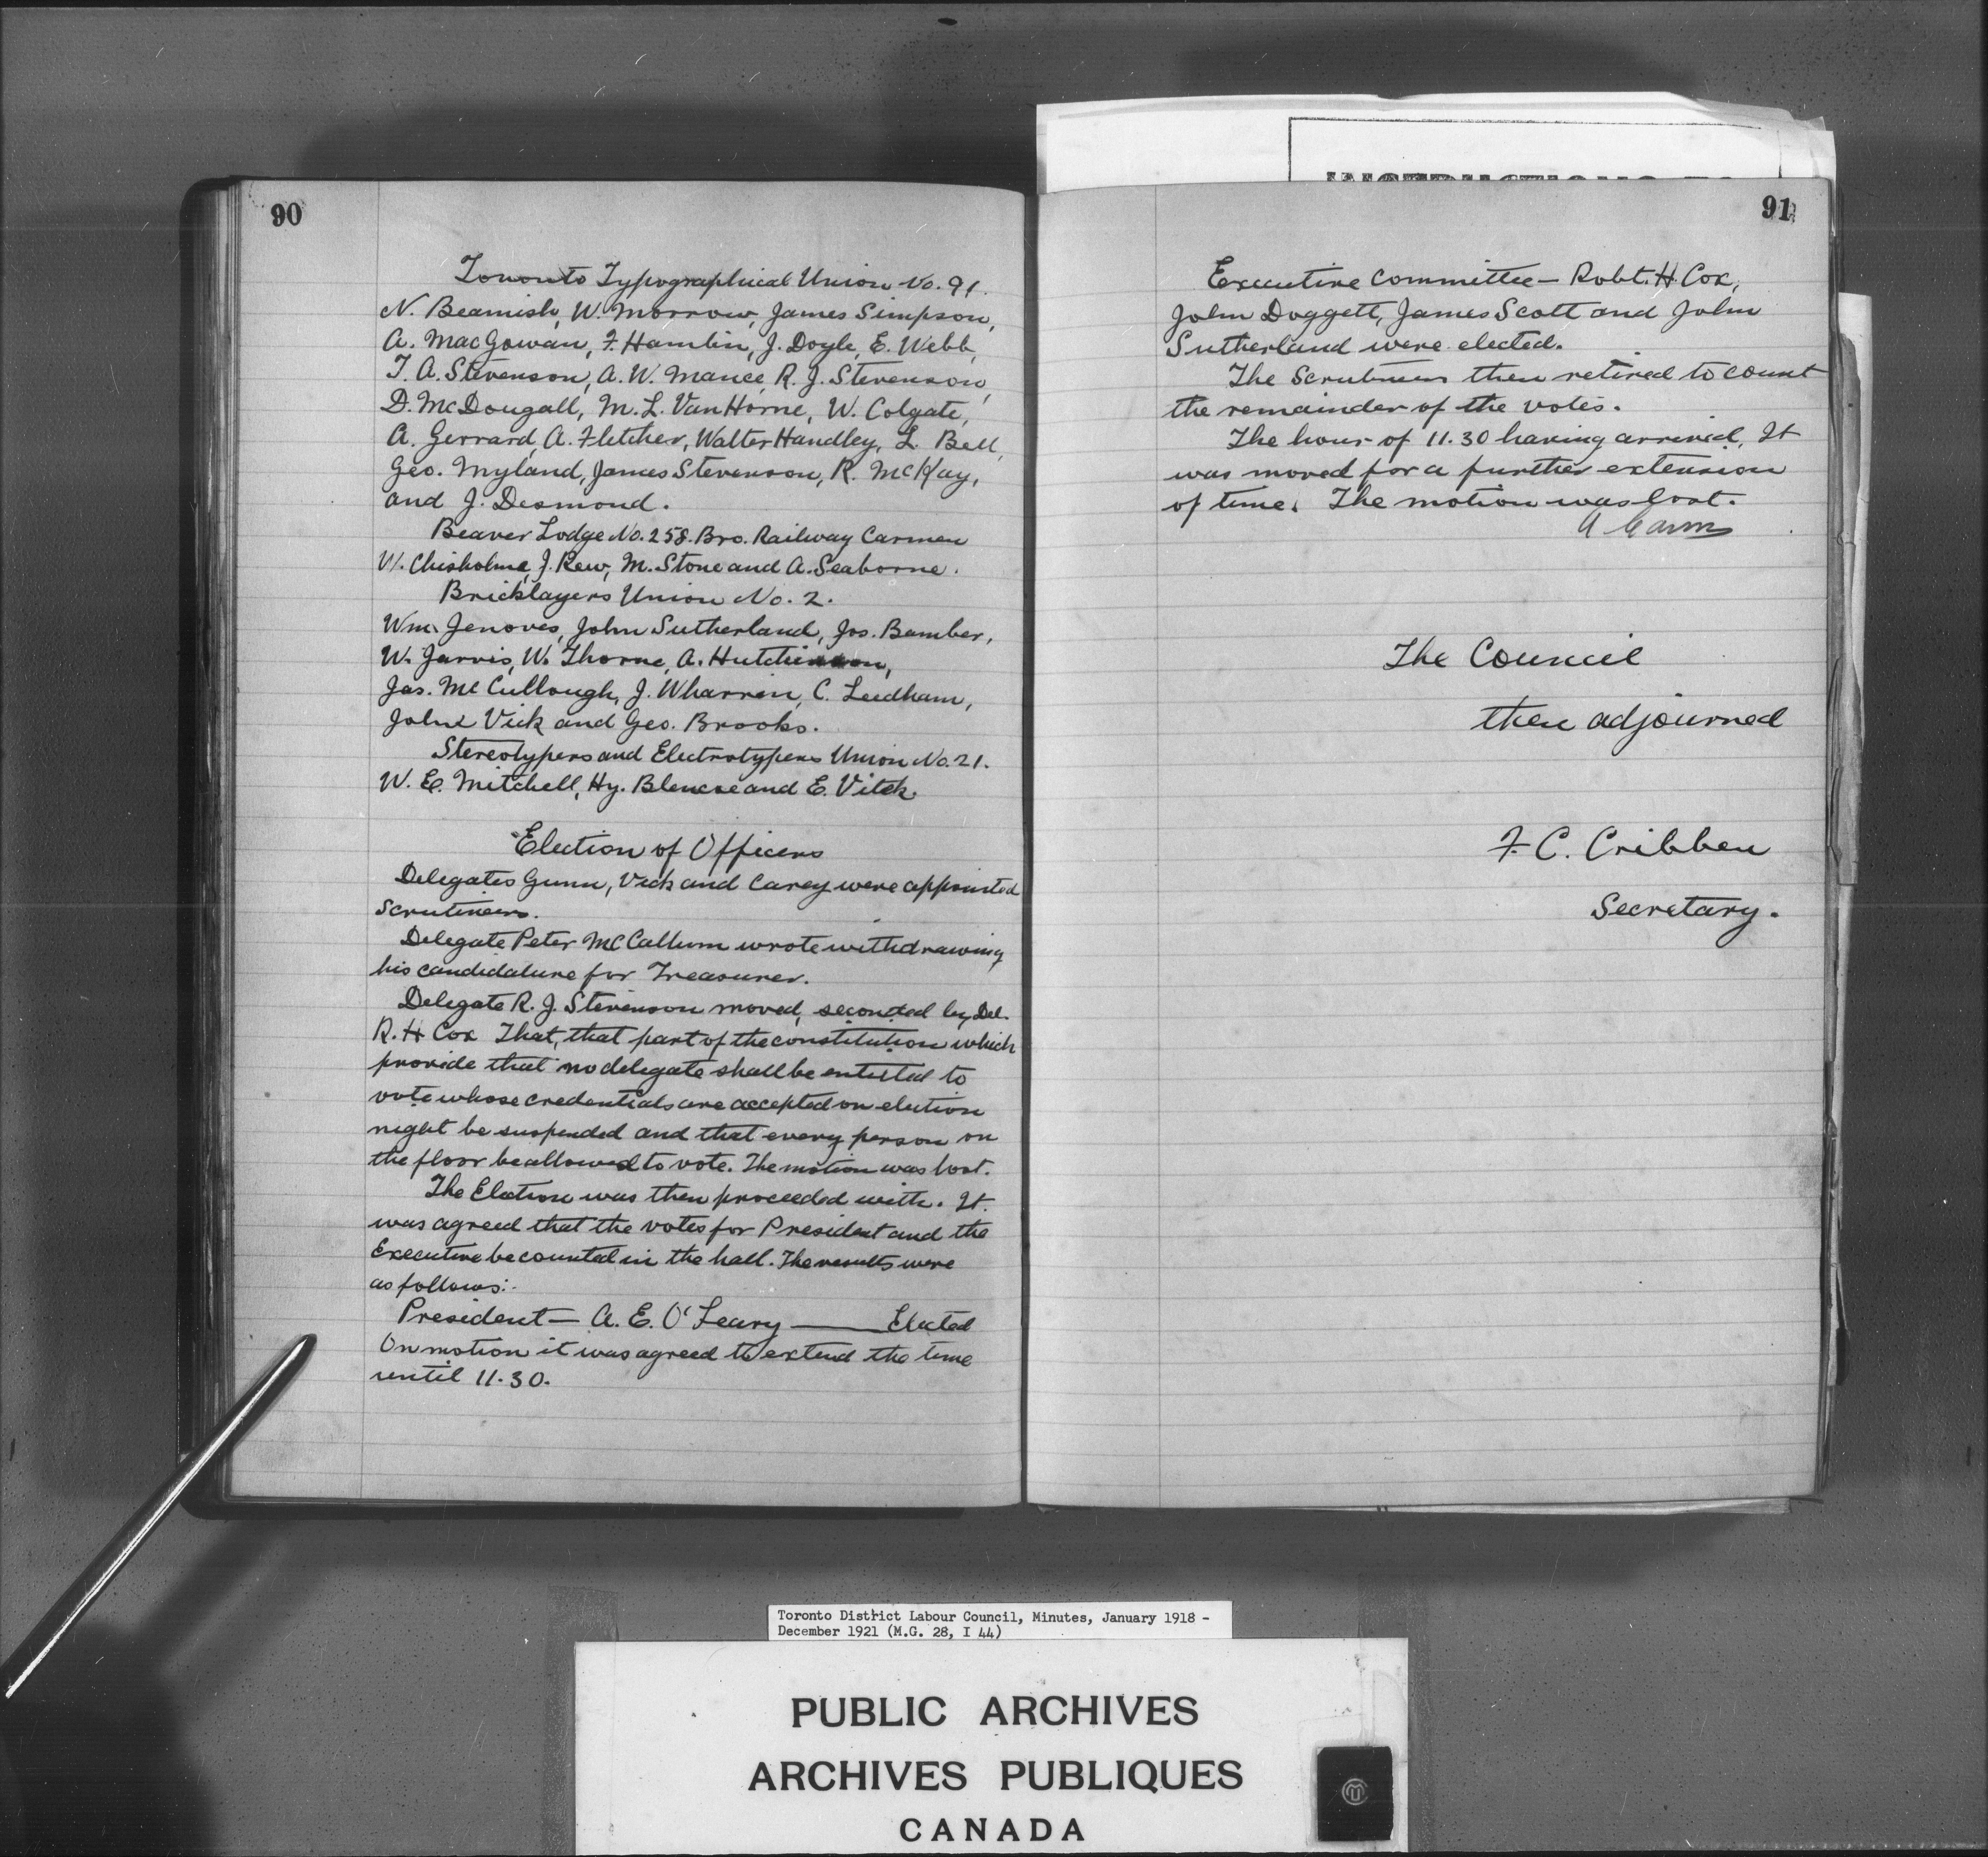 90
Toronto Typographical Union No. 91.
N. Beamish, W. Morrow, James Simpson,
A. MacGowan, F. Hamlin, J. Doyle, E. Webb,
T. A. Stevenson, A. W. Mance, R. J. Stevenson,
D. McDougall, M. L. Van Horne, W. Colgate,
A. Gerrard, A. Fletcher, Walter Handley, L. Bell,
Geo. Myland, James Stevenson, R. McKay,
and J. Desmond.
Beaver Lodge No. 258. Bro. Railway Carmen
W. Chisholme, J. Rew, M. Stone and A. Seaborne.
Bricklayers Union No. 2.
Wm. Jenoves, John Sutherland, Jos. Bamber,
W. Jarvis, W. Thorne, A. Hutchinson,
Jas. McCullough, J. Wharrin, C. Leedham,
John Vick and Geo. Brooks.
Stereotypers and Electrotypers Union No. 21.
W. E. Mitchell, Hy. and E. Vitek.
Election of Officers
Delegates Gunn, Vick and Carey were appointed
scrutineers.
Delegate Peter McCallum wrote withdrawing
his candidature for Treasurer.
Delegate R. J. Stevenson moved, seconded by Del.
R. H Cox That, that part of the constitution which
provide that no delegate shall be entitled to
vote whose credentials are accepted on election
night be suspended and that every person on
the floor be allowed to vote. The motion was lost.
The Election was then proceeded with. It
was agreed that the votes for President and the
Executive be counted in the hall. The results were
as follows:-
President — A. E. O'Leary — Elected
On motion it was agreed to extend the time
until 11.30.
91
Executive Committee — Robt. H. Cox,
John Doggett, James Scott and John
Sutherland were elected.
The Scrutineers then retired to count
the remainder of the votes.
The hour of 11.30 having arrived, It
was moved for a further extension
of time. The motion was lost.
The Council
then adjourned
F. C. Cribben
Secretary.
Toronto District Labour Council, Minutes, January 1918 -
December 1921 (M.G. 28, I 44)
PUBLIC ARCHIVES
ARCHIVES PUBLIQUES
CANADA